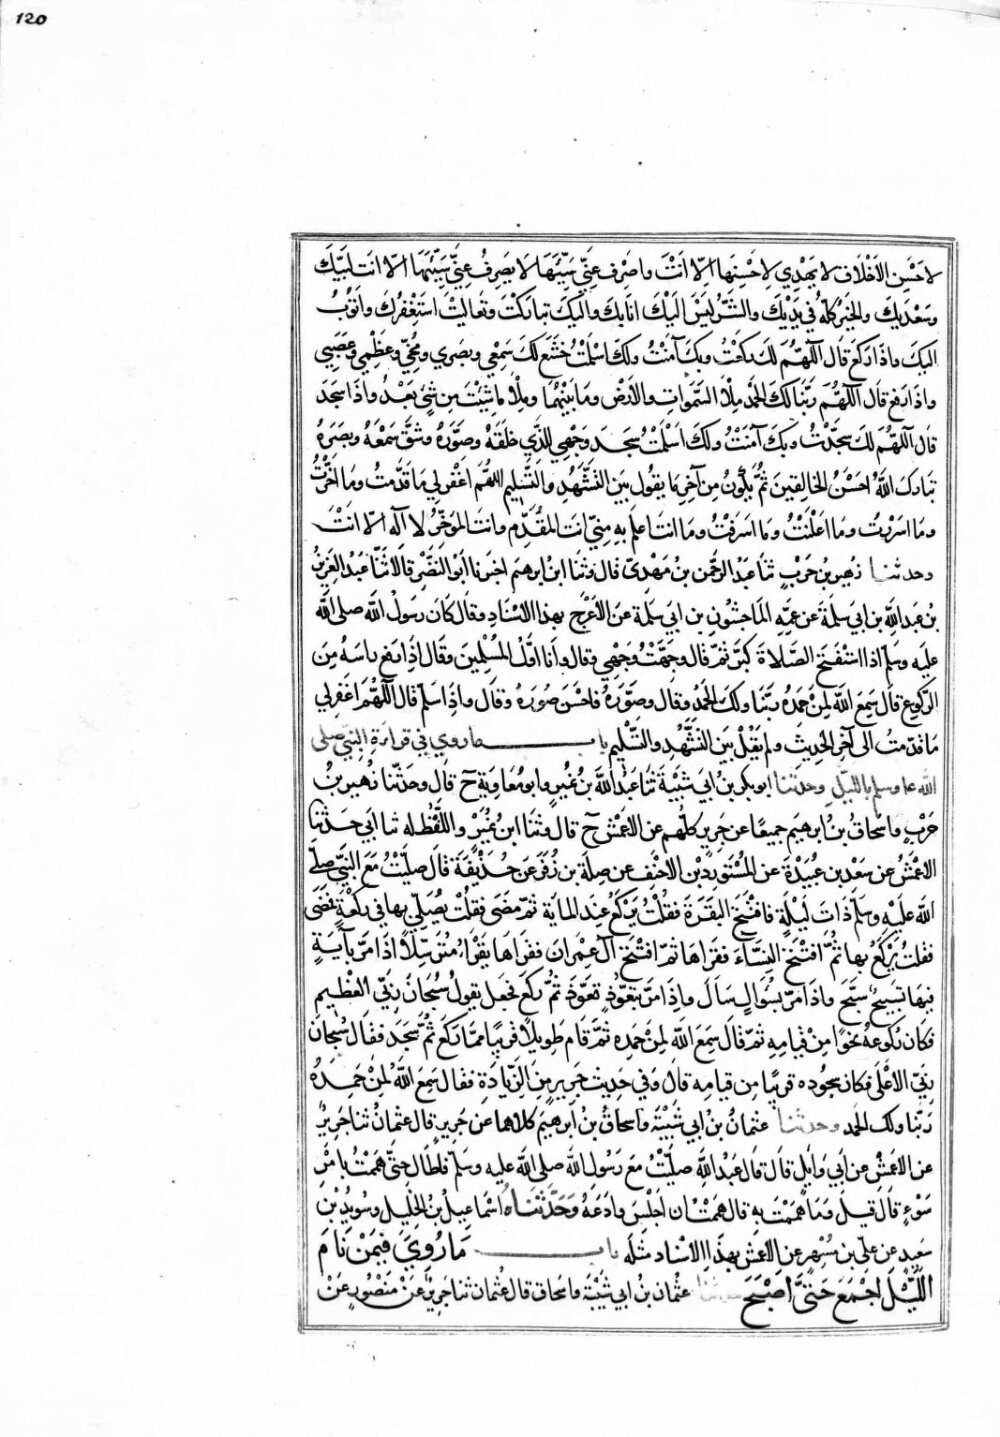 120
لاحسن الاخلاق لا يهدي لاحسنها الا انت واصرف عني سيئها لا يصرف عني سيئها الا انت لبيك
وسعديك والخير كله في يديك والشر ليس اليك انا بك واليك تباركت وتعاليت استغفرك واتوب
اليك واذا ركع قال اللهم لك ركعت وبك آمنت ولك اسلمت خشع لك سمعي وبصري ومخي وعظمي وعصبي
واذا رفع قال اللهم ربنا لك الحمد ملأ السموات والارض وما بينهما وملأ ما شئت من شئ بعد واذا سجد
قال اللهم لك سجدت وبك آمنت ولك اسلمت سجد وجهي للذي خلقه وصوره وشق سمعه وبصره
تبارك الله احسن الخالقين ثم يكون من آخر ما يقول بين التشهد والتسليم اللهم اغفر لي ما قدمت وما اخرت
وما اسررت وما اعلنت وما اسرفت وما انت اعلم به مني انت المقدم وانت المؤخر لا اله الا انت
وحدثنا زهير بن حرب ثنا عبد الرحمن بن مهدي قال وثنا ابن ابرهيم اخبرنا ابو النضر قالا ثنا عبد العزيز
بن عبد الله بن ابي سلمة عن عمه الماجشون بن ابي سلمة عن الاعرج بهذا الاسناد وقال كان رسول الله صلى الله
عليه وسلم اذا استفتح الصلاة كبر ثم قال وجهت وجهي وقال وانا اول المسلمين وقال اذا رفع راسه من
الركوع قال سمع الله لمن حمده ربنا ولك الحمد وقال وصوره فاحسن صوره وقال واذا سلم قال اللهم اغفر لي
ما قدمت الى آخر الحديث ولم يقل بين التشهد والتسليم باب ما روي في قراءة النبي صلى
الله عليه وسلم بالليل وحدثنا ابو بكر بن ابي شيبة ثنا عبد الله بن نمير وابو معاوية ح قال وحدثنا زهير بن
حرب واسحاق بن ابرهيم جميعا عن جرير كلهم عن الاعمش ح قال وثنا ابن نمير واللفظ له ثنا ابي حدثنا
الاعمش عن سعد بن عبيدة عن المستورد بن الاحنف عن صلة بن زفر عن حذيفة قال صليت مع النبي صلى
الله عليه وسلم ذات ليلة فافتتح البقرة فقلت يركع عند المائة ثم مضى فقلت يصلي بها في ركعة فمضى
فقلت يركع بها ثم افتتح النساء فقراها ثم افتتح آل عمران فقراها يقراء مترسلا اذا مر بآية
فيها تسبيح سبح واذا مر بسوال سال واذا مر بتعوذ تعوذ ثم ركع فجعل يقول سبحان ربي العظيم
فكان ركوعه نحوا من قيامه ثم قال سمع الله لمن حمده ثم قام طويلا قريبا مما ركع ثم سجد فقال سبحان
ربي الاعلى فكان سجوده قريبا من قيامه قال وفي حديث جرير من الزيادة فقال سمع الله لمن حمده
ربنا ولك الحمد وحدثنا عثمان بن ابي شيبة واسحاق بن ابرهيم كلاهما عن جرير قال عثمان ثنا جرير
عن الاعمش عن ابي وايل قال قال عبد الله صليت مع رسول الله صلى الله عليه وسلم فاطال حتى هممت بامر
سوء قال قيل وما هممت به قال هممت ان اجلس وادعه وحدثناه اسماعيل بن الخليل وسويد بن
سعيد عن علي بن مسهر عن الاعمش بهذا الاسناد مثله باب ما روي فيمن نام
الليل اجمع حتى اصبح حدثنا عثمان بن ابي شيبة واسحاق قال عثمان ثنا جرير عن منصور عن